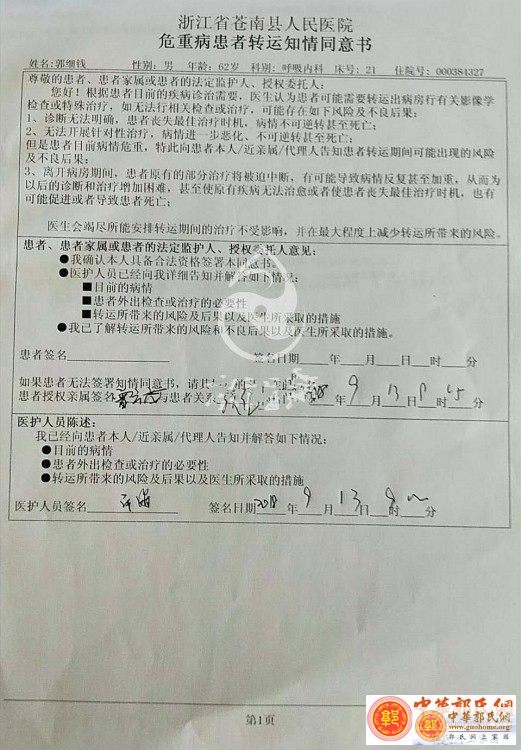 浙江省苍南县人民医院
危重病患者转运知情同意书
姓名:郭细钱 性别:男 年龄:62岁 科别:呼吸内科 床号:21 住院号:000384327
尊敬的患者、患者家属或患者的法定监护人、授权委托人:
您好!根据患者目前的疾病诊治需要,医生认为患者可能需要转运出病房行有关影像学
检查或特殊治疗,如无法行相关检查或治疗,可能存在如下风险及不良后果:
1、诊断无法明细,患者丧失最佳治疗时机,病情不可逆转甚至死亡;
2、无法开展针对性治疗,病情进一步恶化、不可逆转甚至死亡;
但是患者目前病情危重,特此向患者本人/近亲属/代理人告知患者转运期间可能出现的风险
及不良后果:
3、离开病房期间,患者原有的部分治疗将被迫中断,有可能导致病情反复甚至加重,从而为
以后的诊断和治疗增加困难,甚至使原有疾病无法治愈或者使患者丧失最佳治疗时机,也有
可能促进或者导致患者死亡。
医生会竭尽所能安排转运期间的治疗不受影响,并在最大程度上减少转运所带来的风险。
患者、患者家属或患者的法定监护人、授权委托人意见:
●我确认本人具备合法资格签署本同意书。
●医护人员已经向我详细告知并解答如下情况:
■目前的病情
■患者外出检查或治疗的必要性
■转运所带来的风险及后果以及医生所采取的措施
●我已了解转运所带来的风险和不良后果以及医生所采取的措施。
患者签名 签名日期 年 月 日 时 分
如果患者无法签署知情同意书,请其
患者授权亲属签名 与患者关系 年 9 月 13 日 8 时 分
医护人员陈述:
我已经向患者本人/近亲属/代理人告知并解答如下情况:
●目前的病情
●患者外出检查或治疗的必要性
●转运所带来的风险及后果以及医生所采取的措施
医护人员签名 签名日期 年 9 月 13 日 8 时 分
第1页
中华郭氏网
中华郭氏网
www.guohome.org
郭氏网上家园